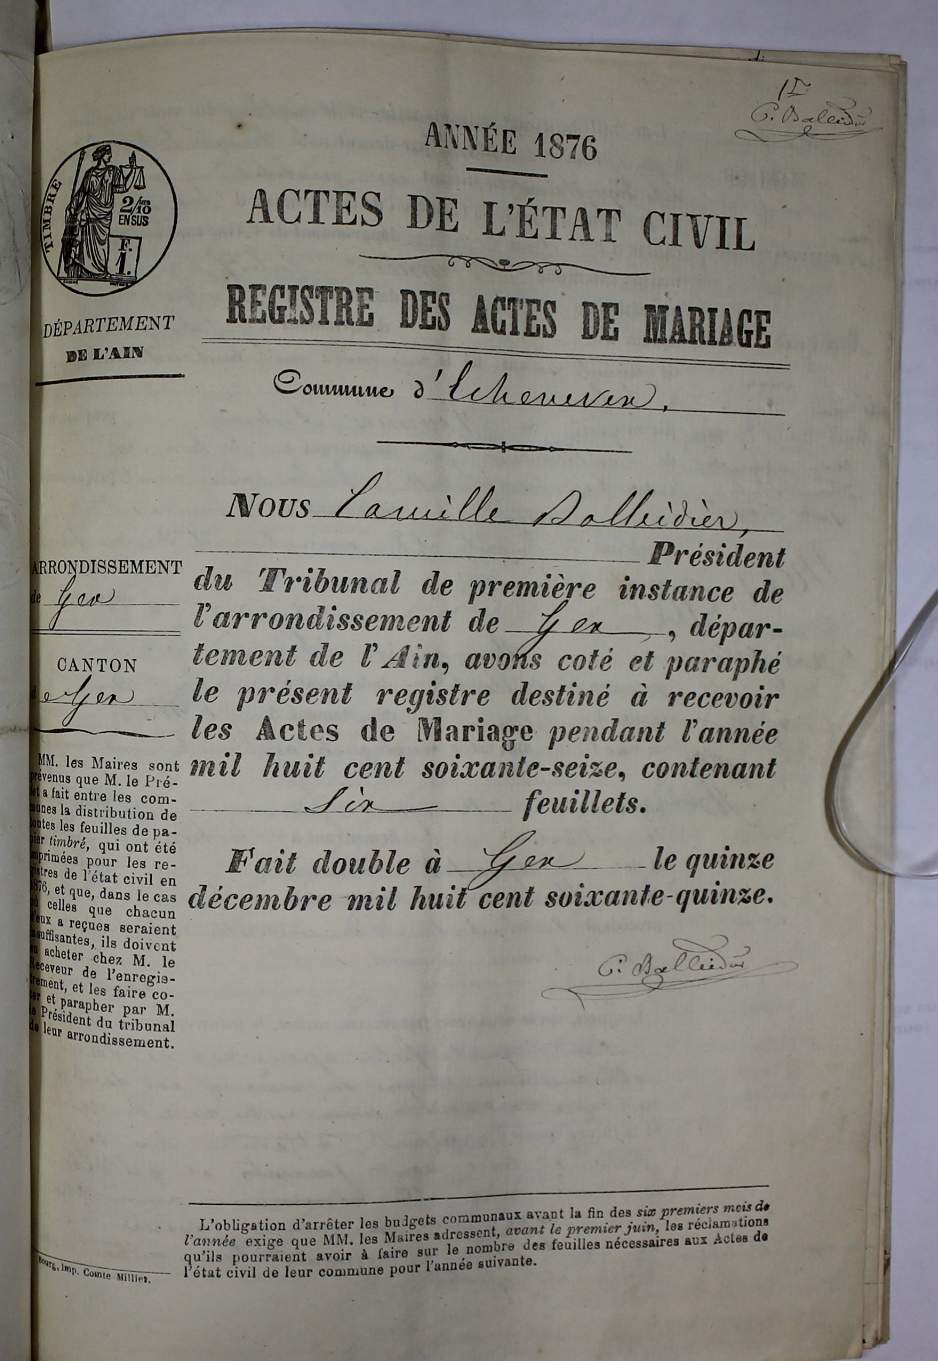 1r
C. Balleidier
ANNÉE 1876
ACTES DE L'ÉTAT CIVIL
REGISTRE DES ACTES DE MARIAGE
Commune d'Echenevex.
TIMBRE
2/10 EN SUS
F.
1.
DÉPARTEMENT
DE L'AIN
ARRONDISSEMENT
de Gex
CANTON
de Gex
MM. les Maires sont
prévenus que M. le Pré-
fet a fait entre les com-
munes la distribution de
toutes les feuilles de pa-
pier timbré, qui ont été
imprimées pour les re-
gistres de l'état civil en
1876, et que, dans le cas
où celles que chacun
d'eux a reçues seraient
insuffisantes, ils doivent
en acheter chez M. le
Receveur de l'enregis-
trement, et les faire co-
ter et parapher par M.
le Président du tribunal
de leur arrondissement.
NOUS Camille Balleidier,
Président
du Tribunal de première instance de
l'arrondissement de Gex, dépar-
tement de l'Ain, avons coté et paraphé
le présent registre destiné à recevoir
les Actes de Mariage pendant l'année
mil huit cent soixante-seize, contenant
Six feuillets.
Fait double à Gex le quinze
décembre mil huit cent soixante-quinze.
C. Balleidier
L'obligation d'arrêter les budgets communaux avant la fin des six premiers mois de
l'année exige que MM. les Maires adressent, avant le premier juin, les réclamations
qu'ils pourraient avoir à faire sur le nombre des feuilles nécessaires aux Actes de
l'état civil de leur commune pour l'année suivante.
Bourg, Imp. Comte Milliet.